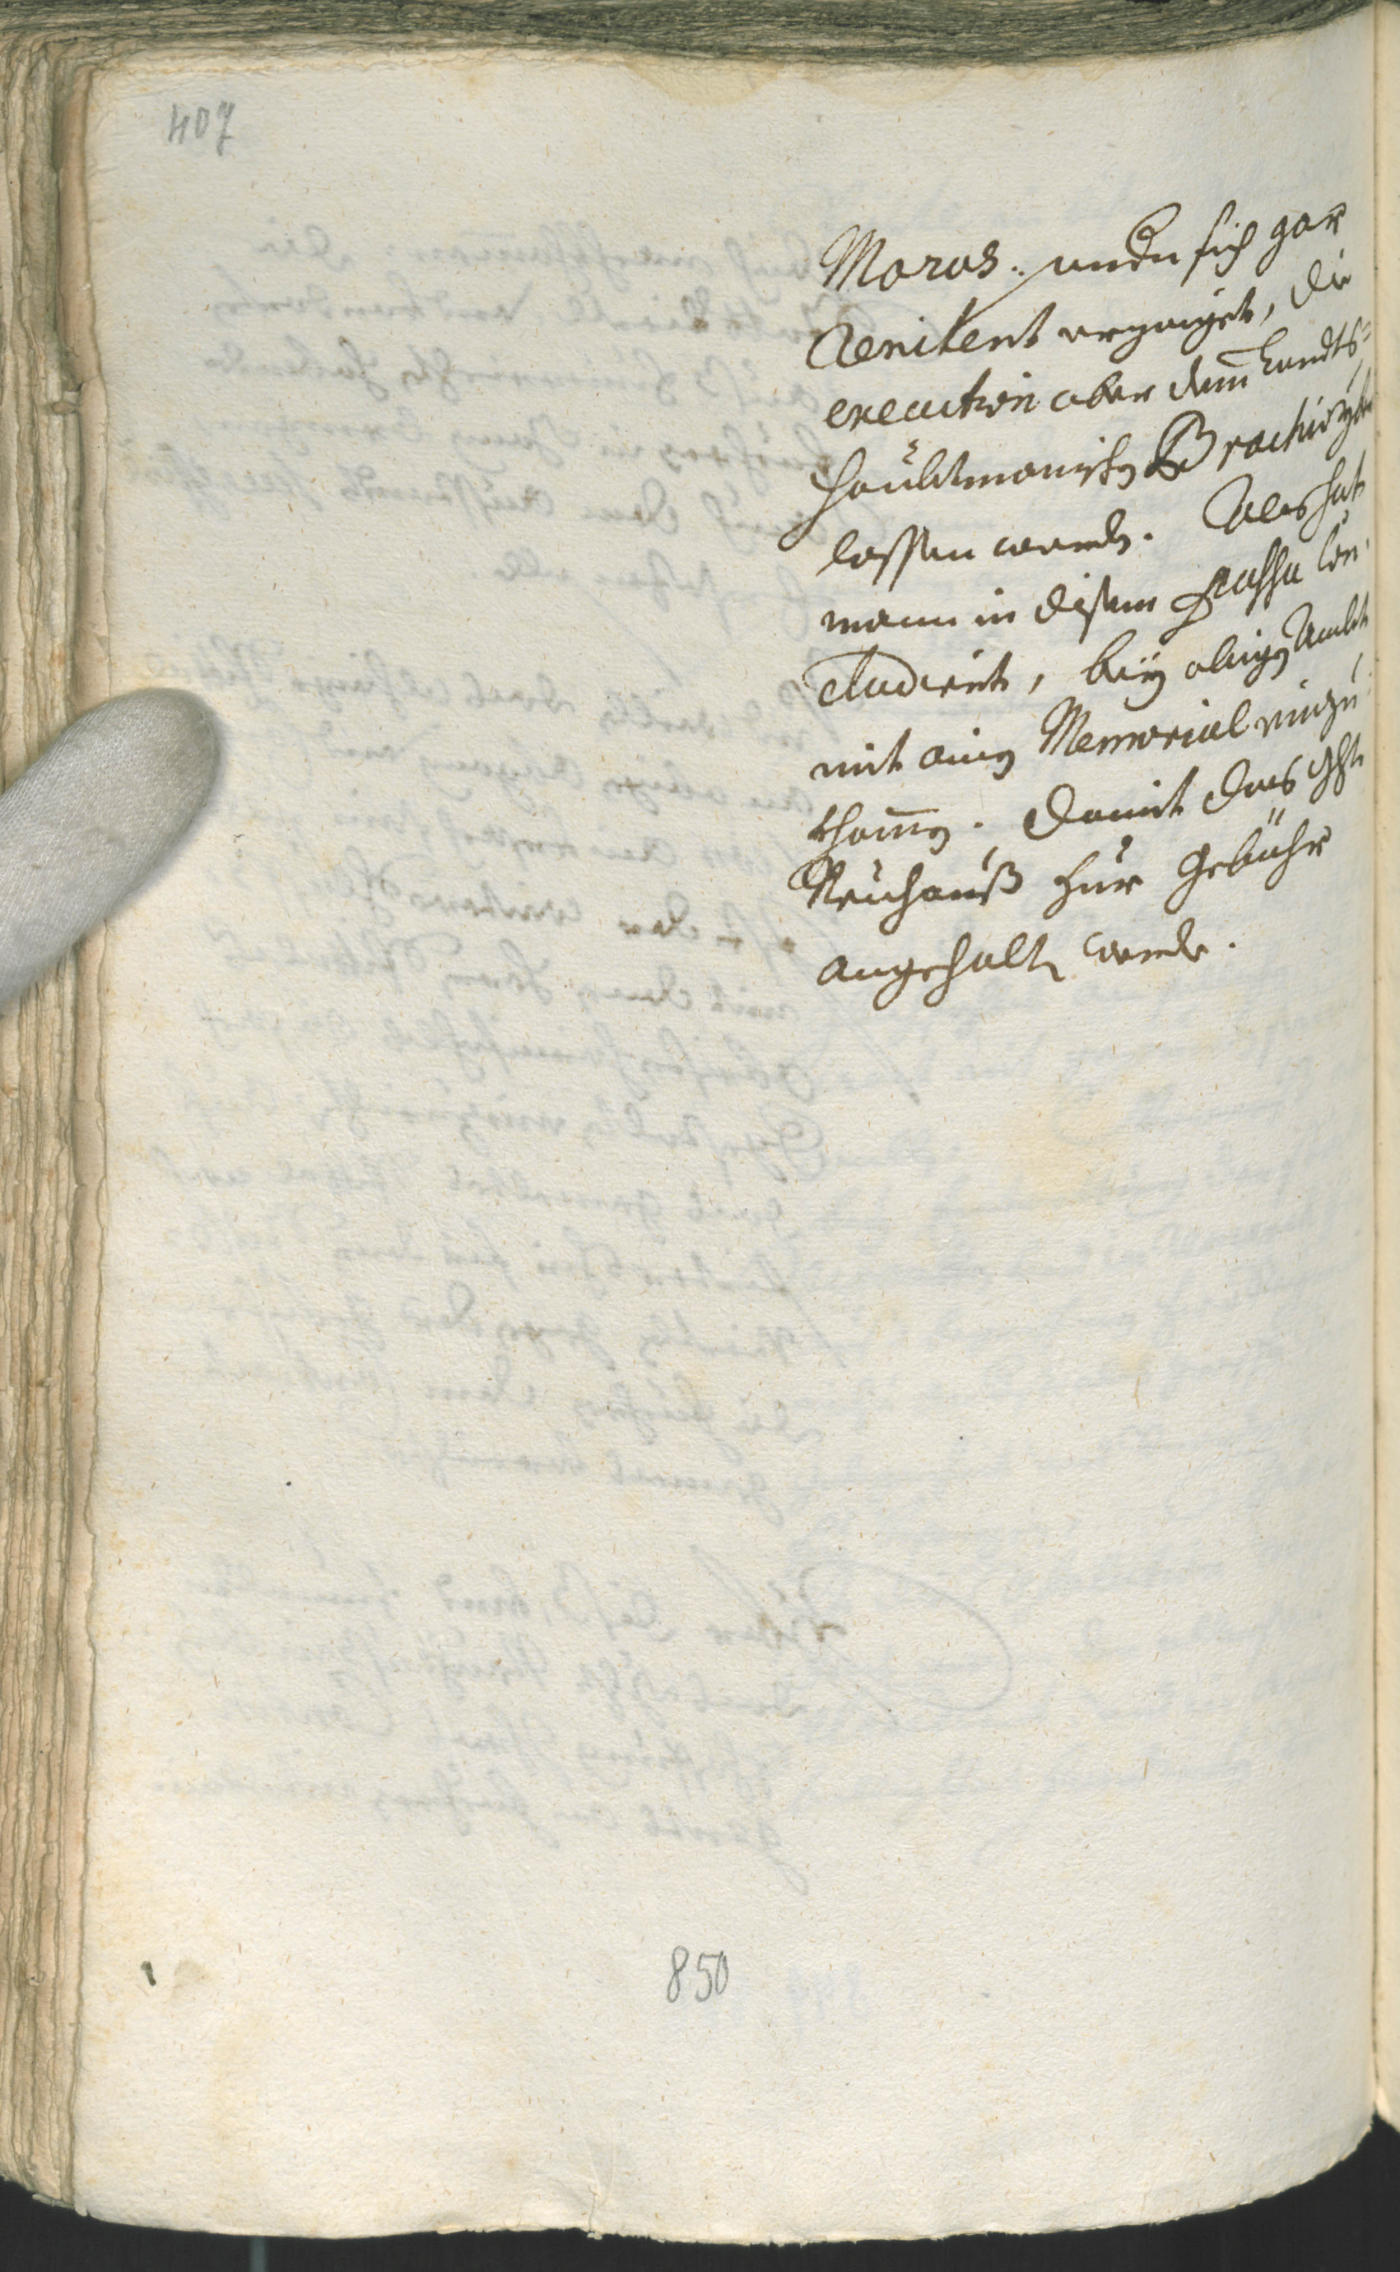 407
Moras. unndn sich gar
Renitent erzaiget, die
execution aber dem Landts=
haubtmanischen Brachio
lassen werden. Alls hat
mann in disem passu con=
cludiert, beÿ obigen Ambt
mit ainen Memorial einzu=
khomen. Damit das
Neuhauß zur Gebühr
angehalten werde.
850